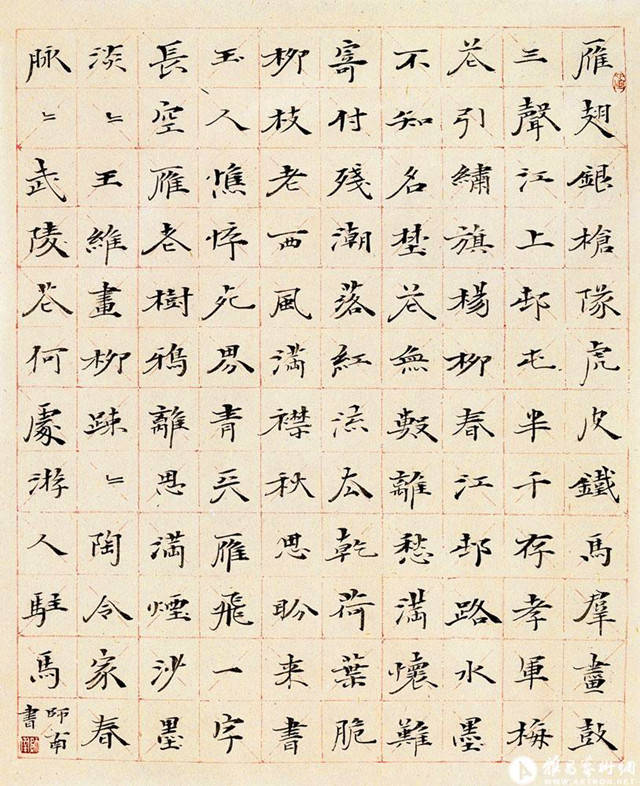 雁翅銀槍隊虎皮鐵馬羣畫鼓
三聲江上邨屯半千存孝軍梅
花引繡旗楊柳春江邨路水墨
不知名埜花無數離愁滿懷難
寄付殘潮落紅流去乾荷葉脆
柳枝老西風滿襟秋思盼来書
玉人憔悴死界青天雁飛一字
長空雁老樹鴉離思滿煙沙墨
淡〻王維畫柳疎〻陶令家春
脉〻武陵花何處游人駐馬
師南
書
雅昌藝術網